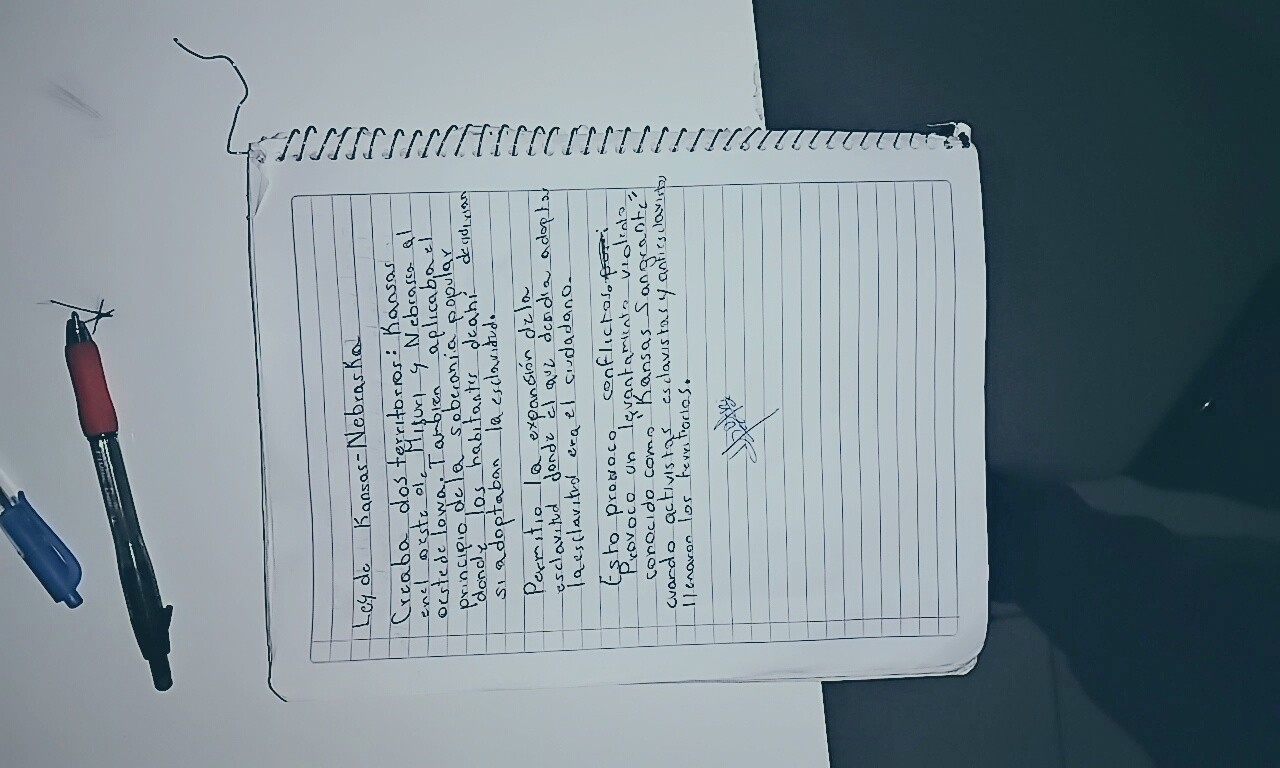 Ley de Kansas-Nebraska
Creaba dos territorros: Kansas
en el oeste de Misuri y Nebrasca al
oeste de Iowa. Tambien aplicaba el
principio de la soberanía popular
donde los habitantes de ahí decidirian
si adoptaban la esclavitud.
Permitio la expansión de la
esclavitud donde el que decidia adoptar
la esclavitud era el ciudadano.
Esto provoco conflictos.
Provoco un levantamiento violento
conocido como "Kansas Sangrante"
cuando activistas esclavistas y antiesclavistas
llenaron los territorios.